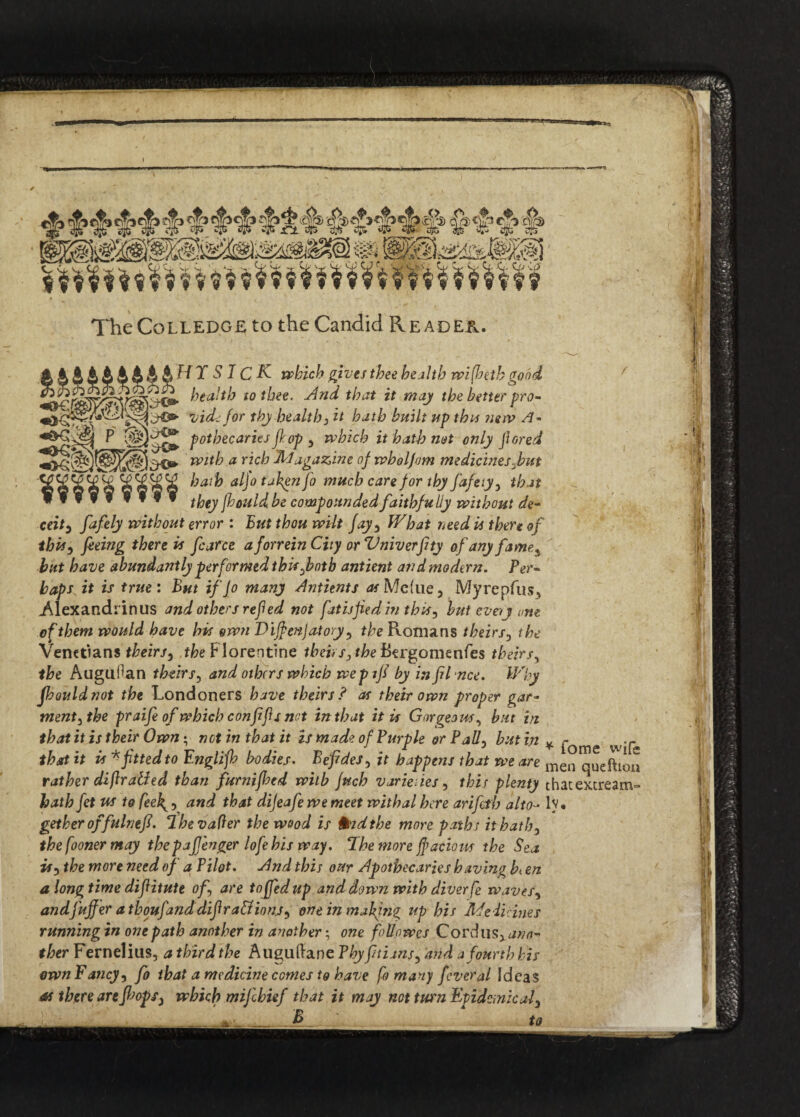 The COLLEDGE to the Candid READER.
PHYSICK which gives thee health wiſheth good
health to thee. And that it may the better pro-
vide for thy health, it hath built up this new A-
pothecaries ſhop, which it hath not only ſtored
with a rich Magazine of wholſom medicines, but
hath alſo taken ſo much care for thy ſafety, that
they ſhould be compounded faithfully without de-
ceit, ſafely without error: But thou wilt ſay, What need is there of
this, ſeeing there is ſcarce a forrein City or Univerſity of any fame,
but have abundantly performed this, both antient and modern. Per-
haps it is true: But if ſo many Antients as Meſue, Myrepſus,
Alexandrinus and others reſted not ſatisfied in this, but every one
of them would have his own Diſpenſatory, the Romans theirs, the
Venetians theirs, the Florentine theirs, the Bergomenſes theirs,
the Auguſtan theirs, and others which we paſs by in ſilence. Why
ſhould not the Londoners have theirs? as their own proper gar-
ment, the praiſe of which conſiſts not in that it is Gorgeous, but in
that it is their Own; not in that it is made of Purple or Pall, but in
that it is * fitted to Engliſh bodies. Beſides, it happens that we are
rather diſtracted than furniſhed with ſuch varieties, this plenty
hath ſet us to ſeek, and that diſeaſe we meet withal here ariſeth alto-
gether of fulneſs. The vaſter the wood is and the more paths it hath,
the ſooner may the paſſenger loſe his way. The more ſpacious the Sea
is, the more need of a Pilot. And this our Apothecaries having been
a long time diſtitute of, are toſſed up and down with diverſe waves,
and ſuffer a thouſand diſtractions, one in making up his Medicines
running in one path another in another; one followes Cordus, ano-
ther Fernelius, a third the Auguſtane Phyſitians, and a fourth his
own Fancy, ſo that a medicine comes to have ſo many ſeveral Ideas
as there are ſhops, which miſchief that it may not turn Epidemical,
B to
* ſome wiſe
men queſtion
that extream-
ly.